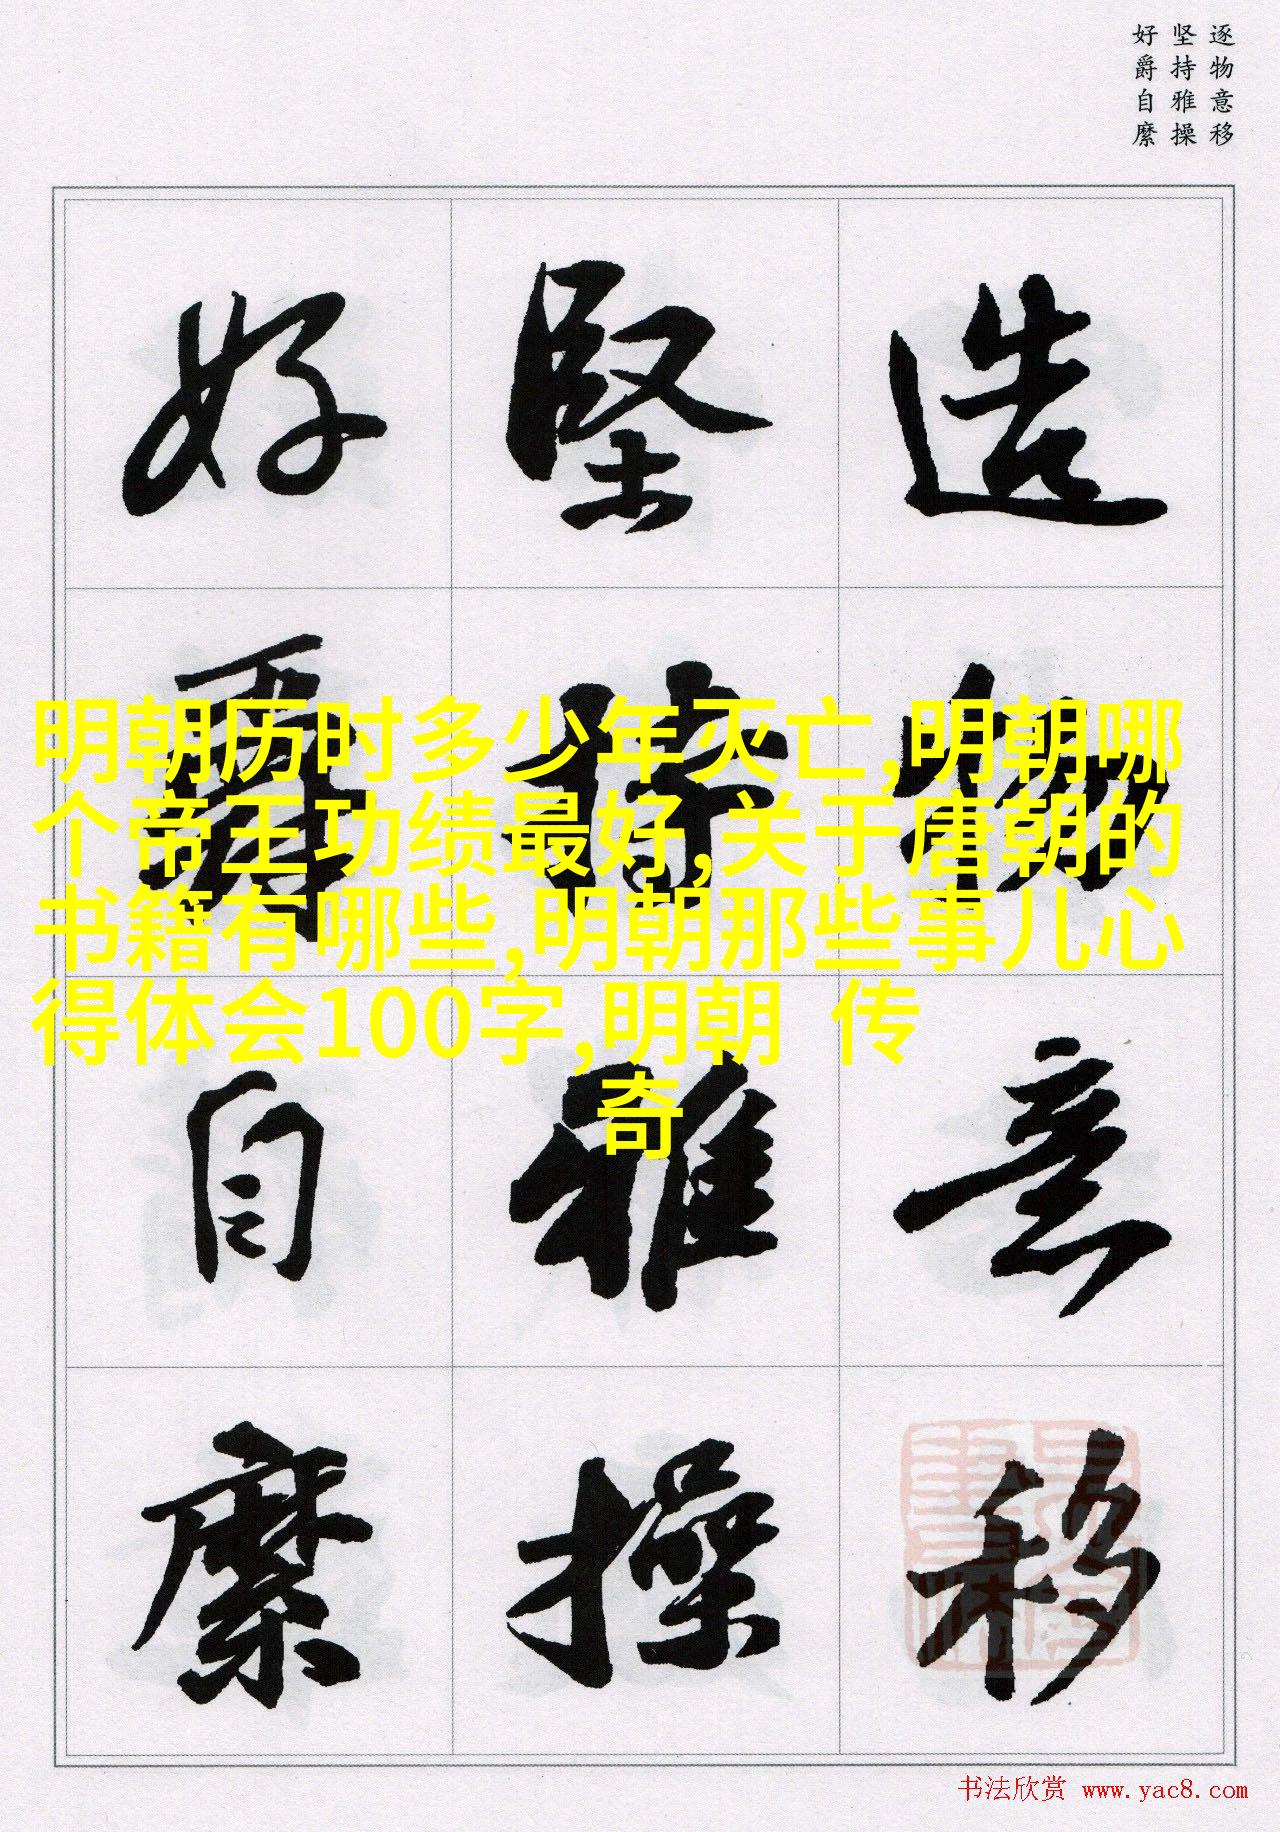 逐物意移
坚持雅操
好爵自縻
造物意移
堅持雅操
好爵自縻
明朝历时多少年灭亡,明朝哪
个帝王功绩最好,关于唐朝的
书籍有哪些,明朝那些事儿心
得体会100字,明朝 传
奇
书法欣赏 www.yac8.com